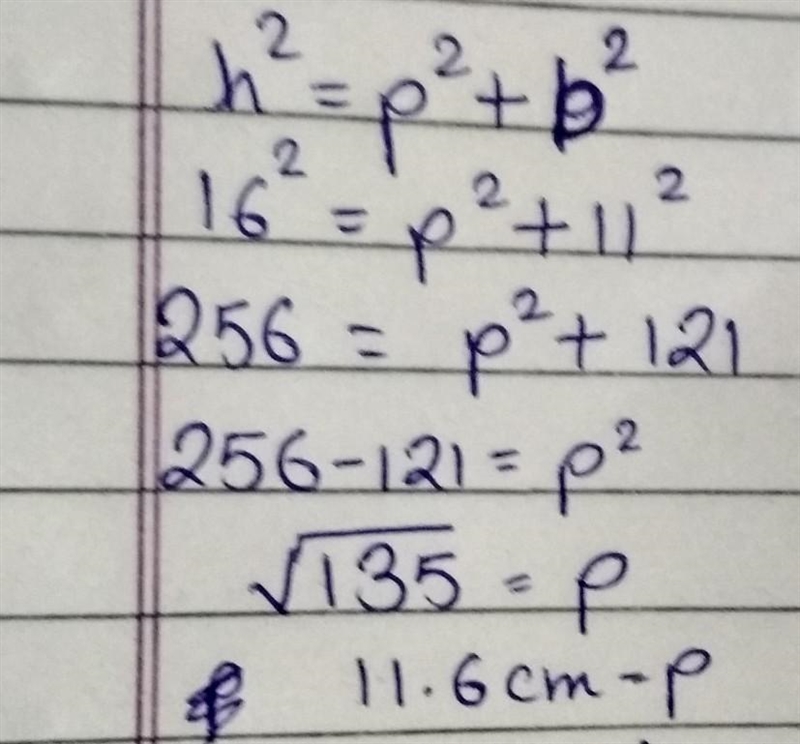 h² = p² + b²
16² = p² + 11²
256 = p² + 121
256 - 121 = p²
√135 = p
11.6 cm - p